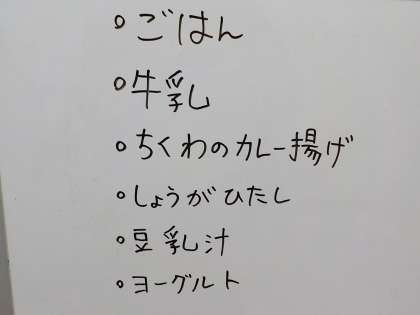 ○ごはん
○牛乳
○ちくわのカレー揚げ
○しょうがひたし
○豆乳汁
○ヨーグルト